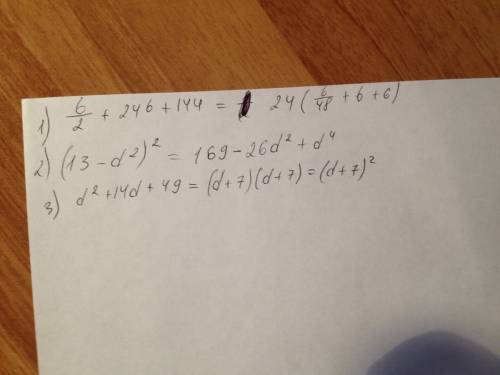 1) b/2 + 24b + 144 = 24(b/48 + b + 6)
2) (13 - d²)² = 169 - 26d² + d⁴
3) d² + 14d + 49 = (d+7)(d+7) = (d+7)²